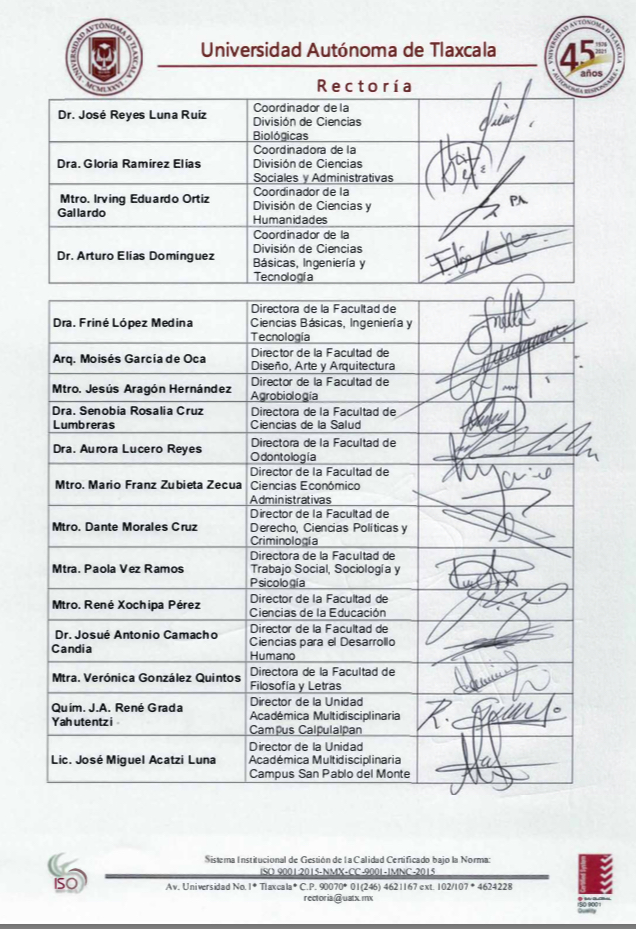 Universidad Autónoma de Tlaxcala
Rectoría
UNIVERSIDAD AUTÓNOMA D TLAXCALA
MCMLXXVI
45
1976
2021
años
Dr. José Reyes Luna Ruíz
Coordinador de la
División de Ciencias
Biológicas
Dra. Gloria Ramírez Elías
Coordinadora de la
División de Ciencias
Sociales y Administrativas
Mtro. Irving Eduardo Ortiz
Gallardo
Coordinador de la
División de Ciencias y
Humanidades
PA
Dr. Arturo Elías Domínguez
Coordinador de la
División de Ciencias
Básicas, Ingeniería y
Tecnología
Dra. Friné López Medina
Directora de la Facultad de
Ciencias Básicas, Ingeniería y
Tecnología
Arq. Moisés García de Oca
Director de la Facultad de
Diseño, Arte y Arquitectura
Mtro. Jesús Aragón Hernández
Director de la Facultad de
Agrobiología
Dra. Senobia Rosalia Cruz
Lumbreras
Directora de la Facultad de
Ciencias de la Salud
Dra. Aurora Lucero Reyes
Directora de la Facultad de
Odontología
Mtro. Mario Franz Zubieta Zecua
Director de la Facultad de
Ciencias Económico
Administrativas
Mtro. Dante Morales Cruz
Director de la Facultad de
Derecho, Ciencias Políticas y
Criminología
Mtra. Paola Vez Ramos
Directora de la Facultad de
Trabajo Social, Sociología y
Psicología
Mtro. René Xochipa Pérez
Director de la Facultad de
Ciencias de la Educación
Dr. Josué Antonio Camacho
Candia
Director de la Facultad de
Ciencias para el Desarrollo
Humano
Mtra. Verónica González Quintos
Directora de la Facultad de
Filosofía y Letras
Quím. J.A. René Grada
Yahutentzi
Director de la Unidad
Académica Multidisciplinaria
Campus Calpulalpan
Lic. José Miguel Acatzi Luna
Director de la Unidad
Académica Multidisciplinaria
Campus San Pablo del Monte
ISO
Sistema Institucional de Gestión de la Calidad Certificado bajo la Norma:
ISO 9001:2015-NMX-CC-9001-IMNC-2015
Av. Universidad No. 1* Tlaxcala* C.P. 90070* 01(246) 4621167 ext. 102/107 * 4624228
rectoria@uatx.mx
Certified System
ISO 9001
Quality